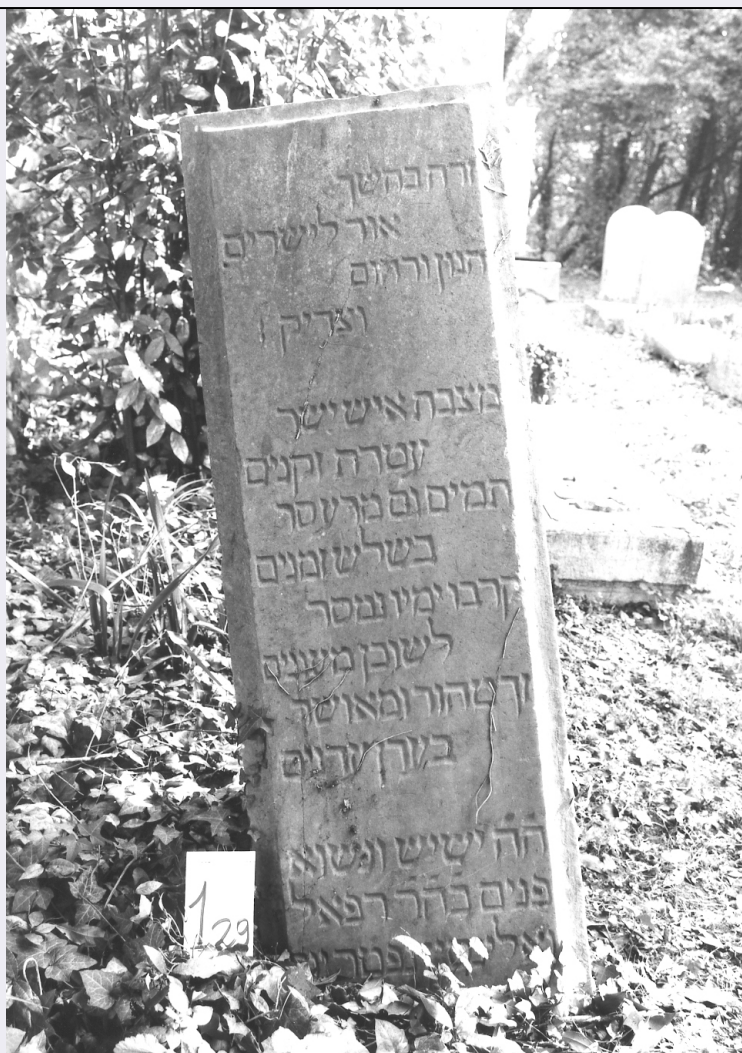 זרח בחשך
אור לישרים
חנון ורחום
וצדיק
מצבת איש ישר
עטרת זקנים
תמים ום מרע סר
בשלש זמנים
קרבו ימיו נמסר
לשוכן מעונים
זך טהור ומאושר
בעדן
הה ישיש ונשוא
פנים בהר רפאל
נפטר יום
129